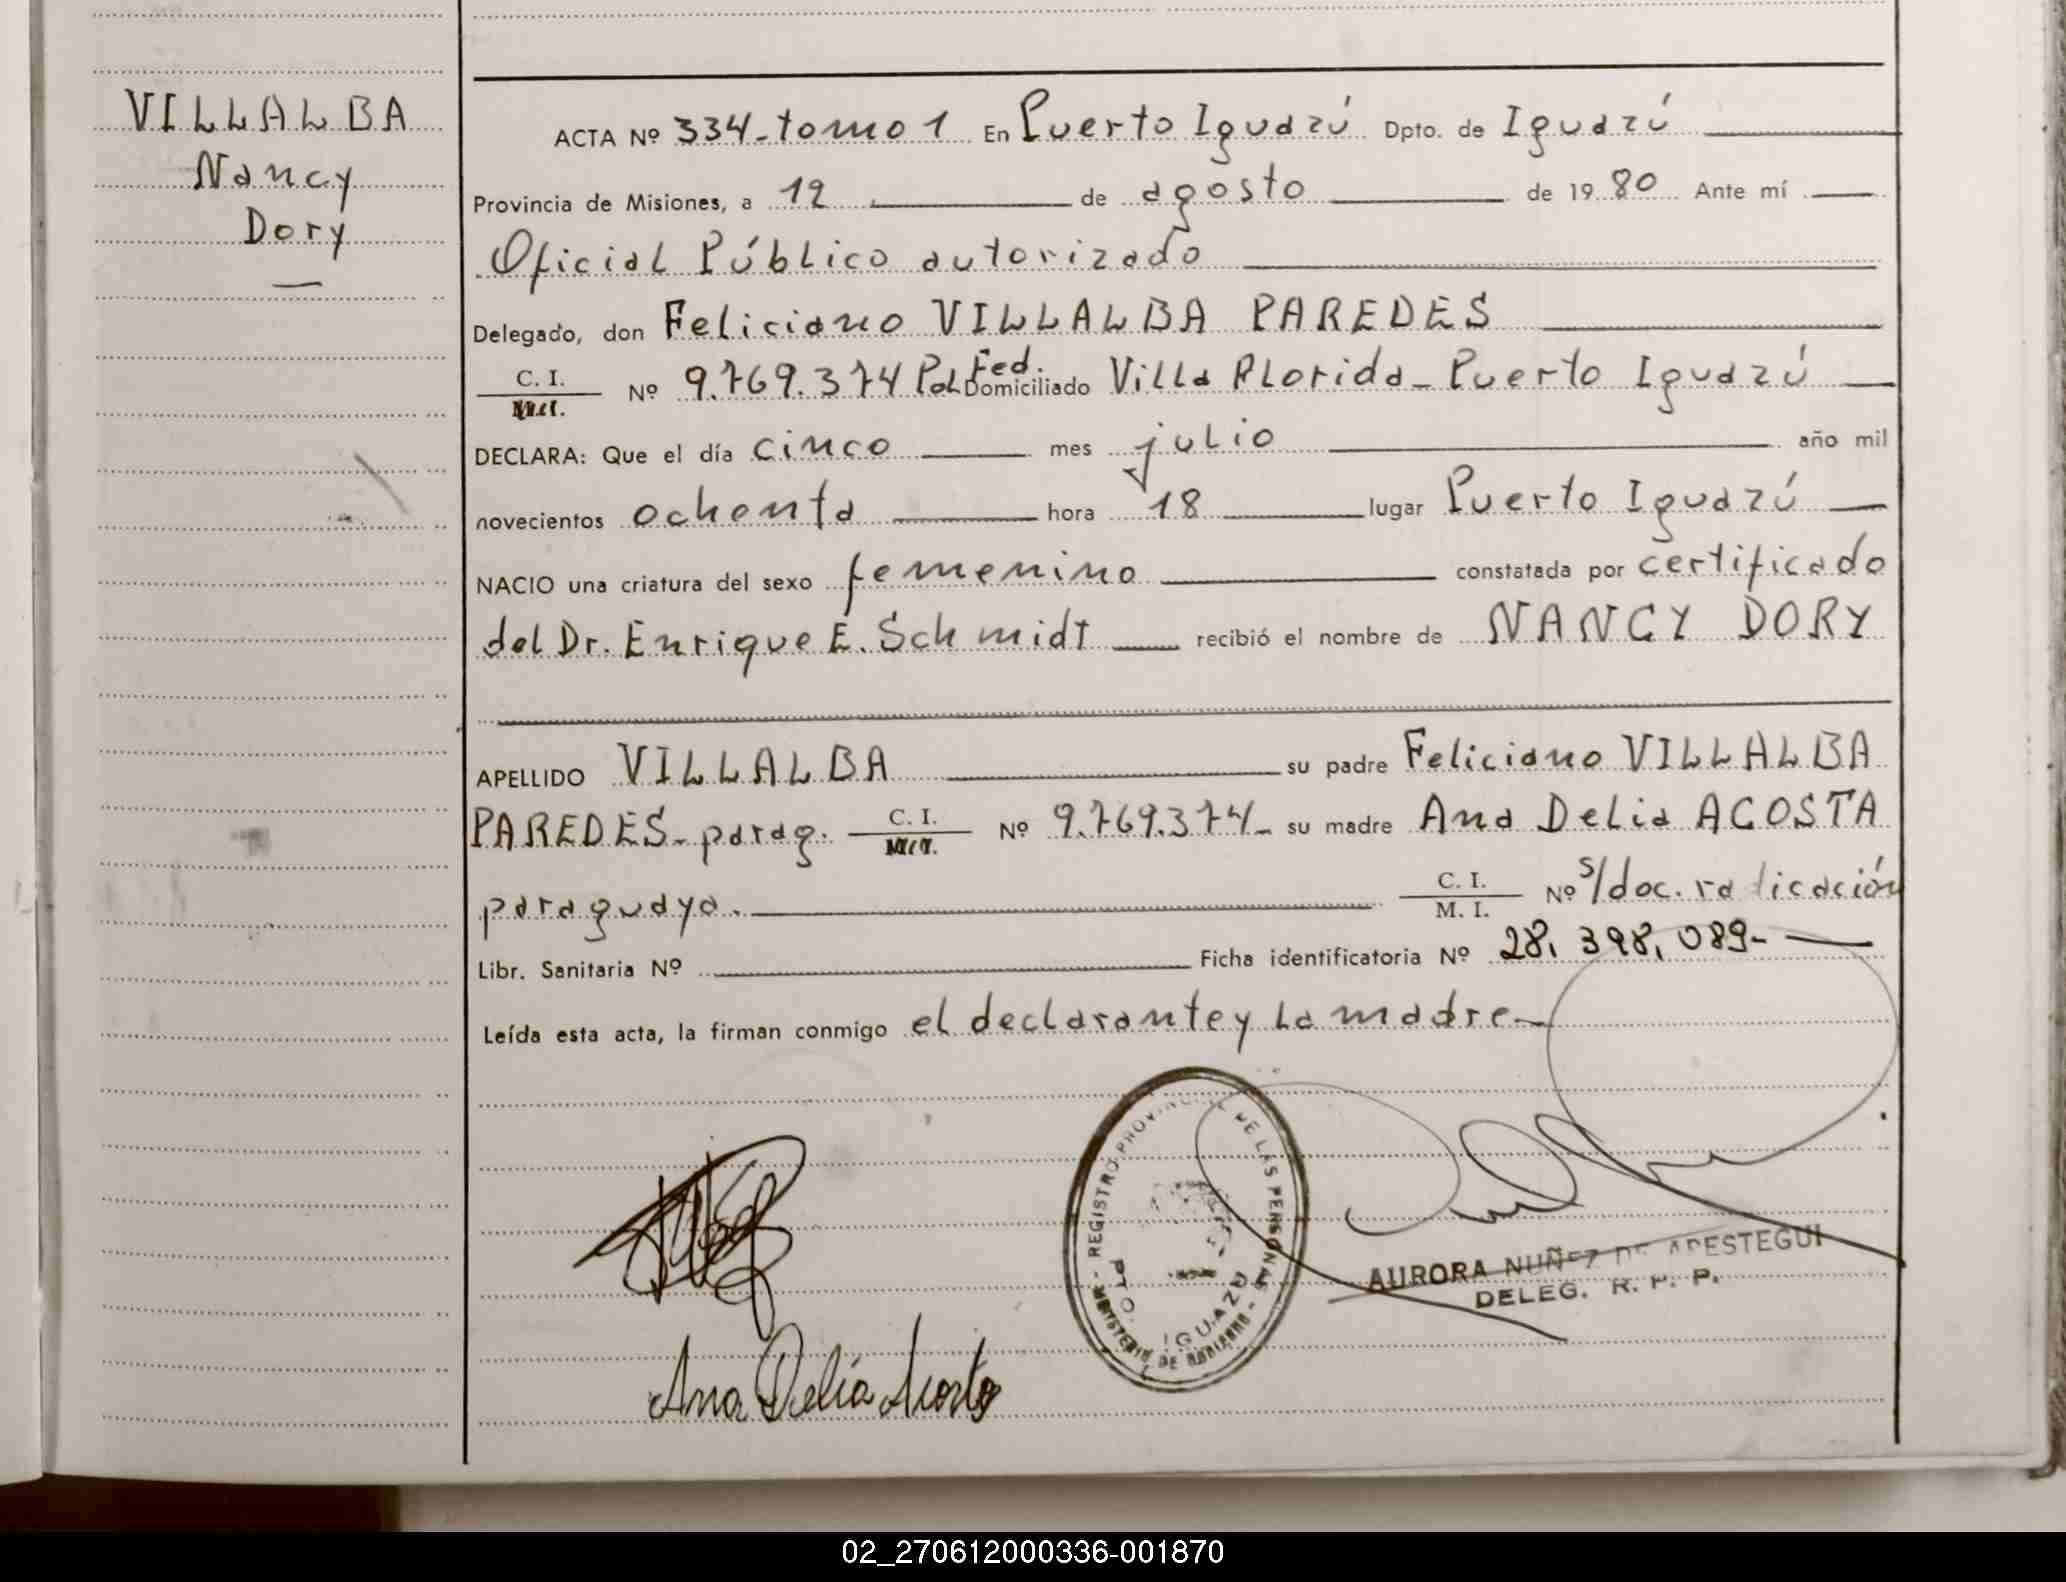 VILLALBA
Nancy
Dory
ACTA Nº 334-tomo 1 En Puerto Iguazú Dpto. de Iguazú
Provincia de Misiones, a 12 de agosto de 1980 Ante mí
Oficial Público autorizado
Delegado, don Feliciano VILLALBA PAREDES
C. I. Nº 9.769.374 Pol. Fed. Domiciliado Villa Florida - Puerto Iguazú
DECLARA: Que el día cinco mes julio año mil
novecientos ochenta hora 18 lugar Puerto Iguazú
NACIO una criatura del sexo femenino constatada por certificado
del Dr. Enrique E. Schmidt recibió el nombre de NANCY DORY
APELLIDO VILLALBA su padre Feliciano VILLALBA
PAREDES- parag. C. I. Nº 9.769.374- su madre Ana Delia ACOSTA
paraguaya. C. I. M. I. Nº s/doc. radicación
Libr. Sanitaria Nº Ficha identificatoria Nº 28.398.089-
Leída esta acta, la firman conmigo el declarante y la madre-
REGISTRO PROVINCIAL DE LAS PERSONAS
PTO. IGUAZU
MINISTERIO DE GOBIERNO
AURORA NUÑEZ DE APESTEGUI
DELEG. R. P. P.
Ana Delia Acosta
02_270612000336-001870